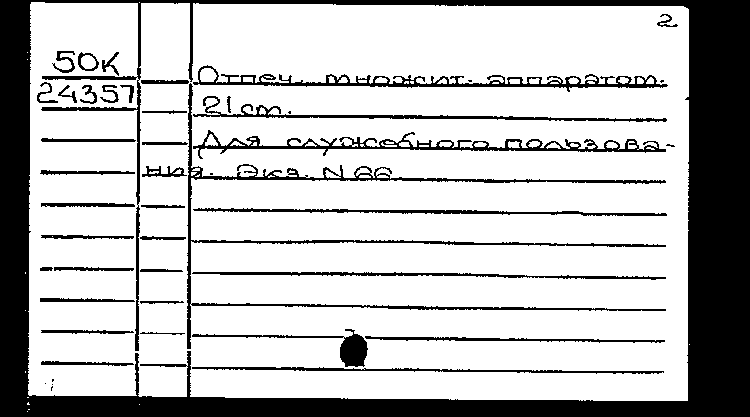 2
50К
24357
Отпеч. множит. аппаратом.
21 cm.
Для служебного пользова-
ния. Экз. N 66.